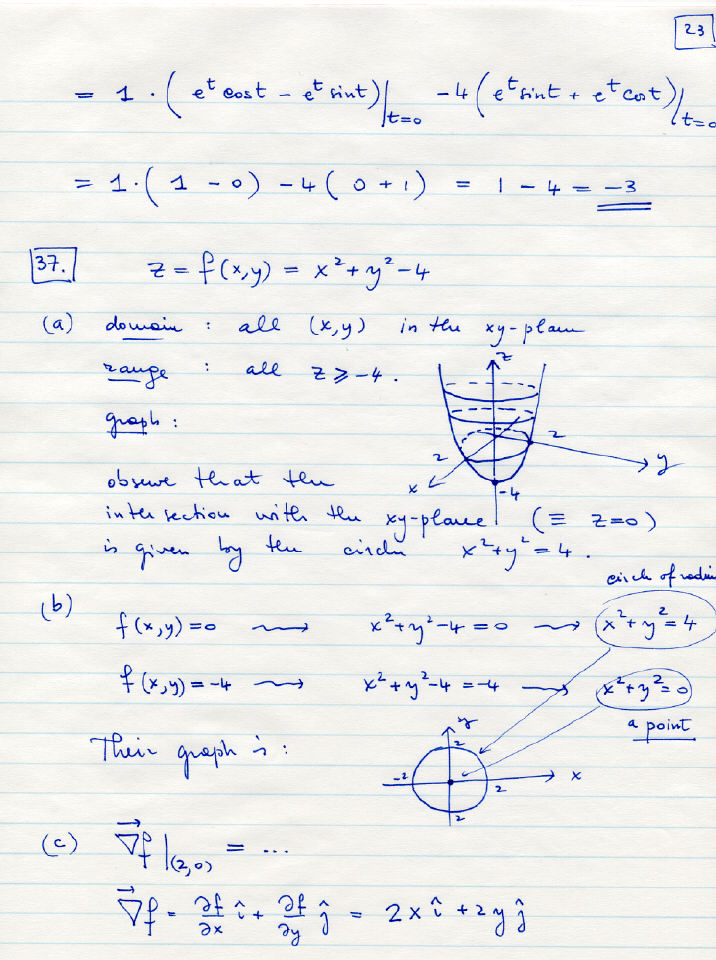 23
= 1 · ( e^t cost − e^t sint)|_{t=0} − 4( e^t sint + e^t cost)|_{t=0}
= 1·( 1 − 0) − 4( 0 + 1) = 1 − 4 = −3
37. z = f(x,y) = x² + y² − 4
(a) domain : all (x,y) in the xy-plane
range : all z ≥ −4.
graph :
z
2
2
y
x
−4
observe that the
intersection with the xy-plane (≡ z=0)
is given by the circle x²+y² = 4 .
circle of radius
(b) f(x,y) = 0 ⟶ x²+y²−4 = 0 ⟶ x²+y² = 4
f(x,y) = −4 ⟶ x²+y²−4 = −4 ⟶ x²+y² = 0
a point
Their graph is :
y
2
−2
2
x
2
(c) ∇⃗f |_{(2,0)} = ...
∇⃗f = ∂f/∂x î + ∂f/∂y ĵ = 2x î + 2y ĵ